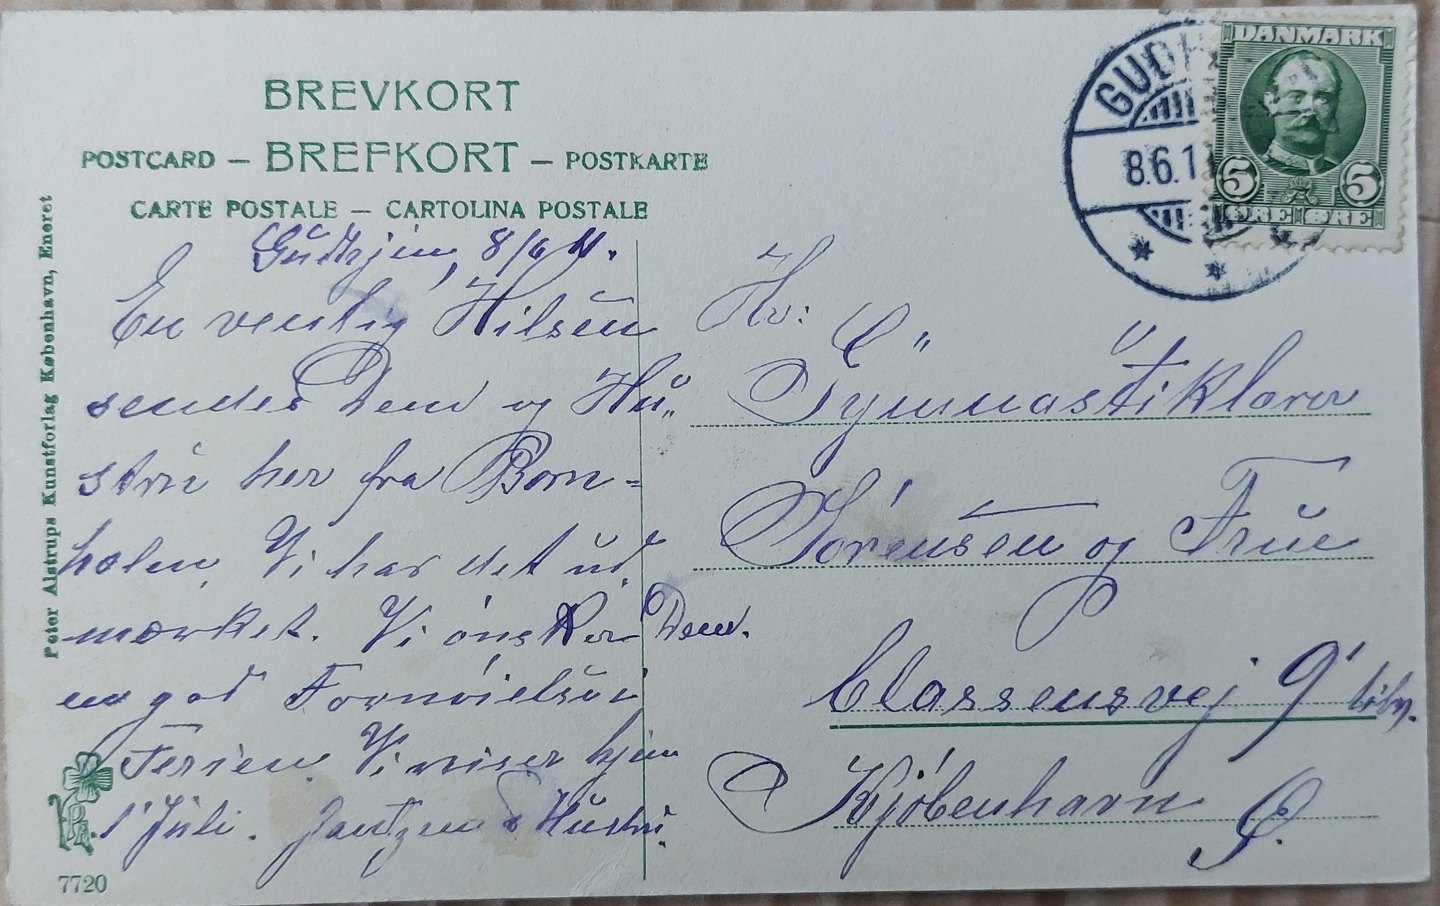 BREVKORT
POSTCARD — BREFKORT — POSTKARTE
CARTE POSTALE — CARTOLINA POSTALE
Peter Alstrups Kunstforlag København, Eneret
Gudhjem, 8/6 11.
En venlig Hilsen
sendes Dem og Hu„
stru her fra Born=
holm. Vi har det ud„
mærket. Vi ónsker Dem.
en god Fornóielse i
Ferien. Vi reiser hjem
1' Juli. Jantzen & Hustru.
7720
DANMARK
5 5
ØRE ØRE
GUDH
8.6.11
Hr: C"
Gymnastiklærer
Sórensen og Frue
Classensvej 9'
Kjóbenhavn Ø.